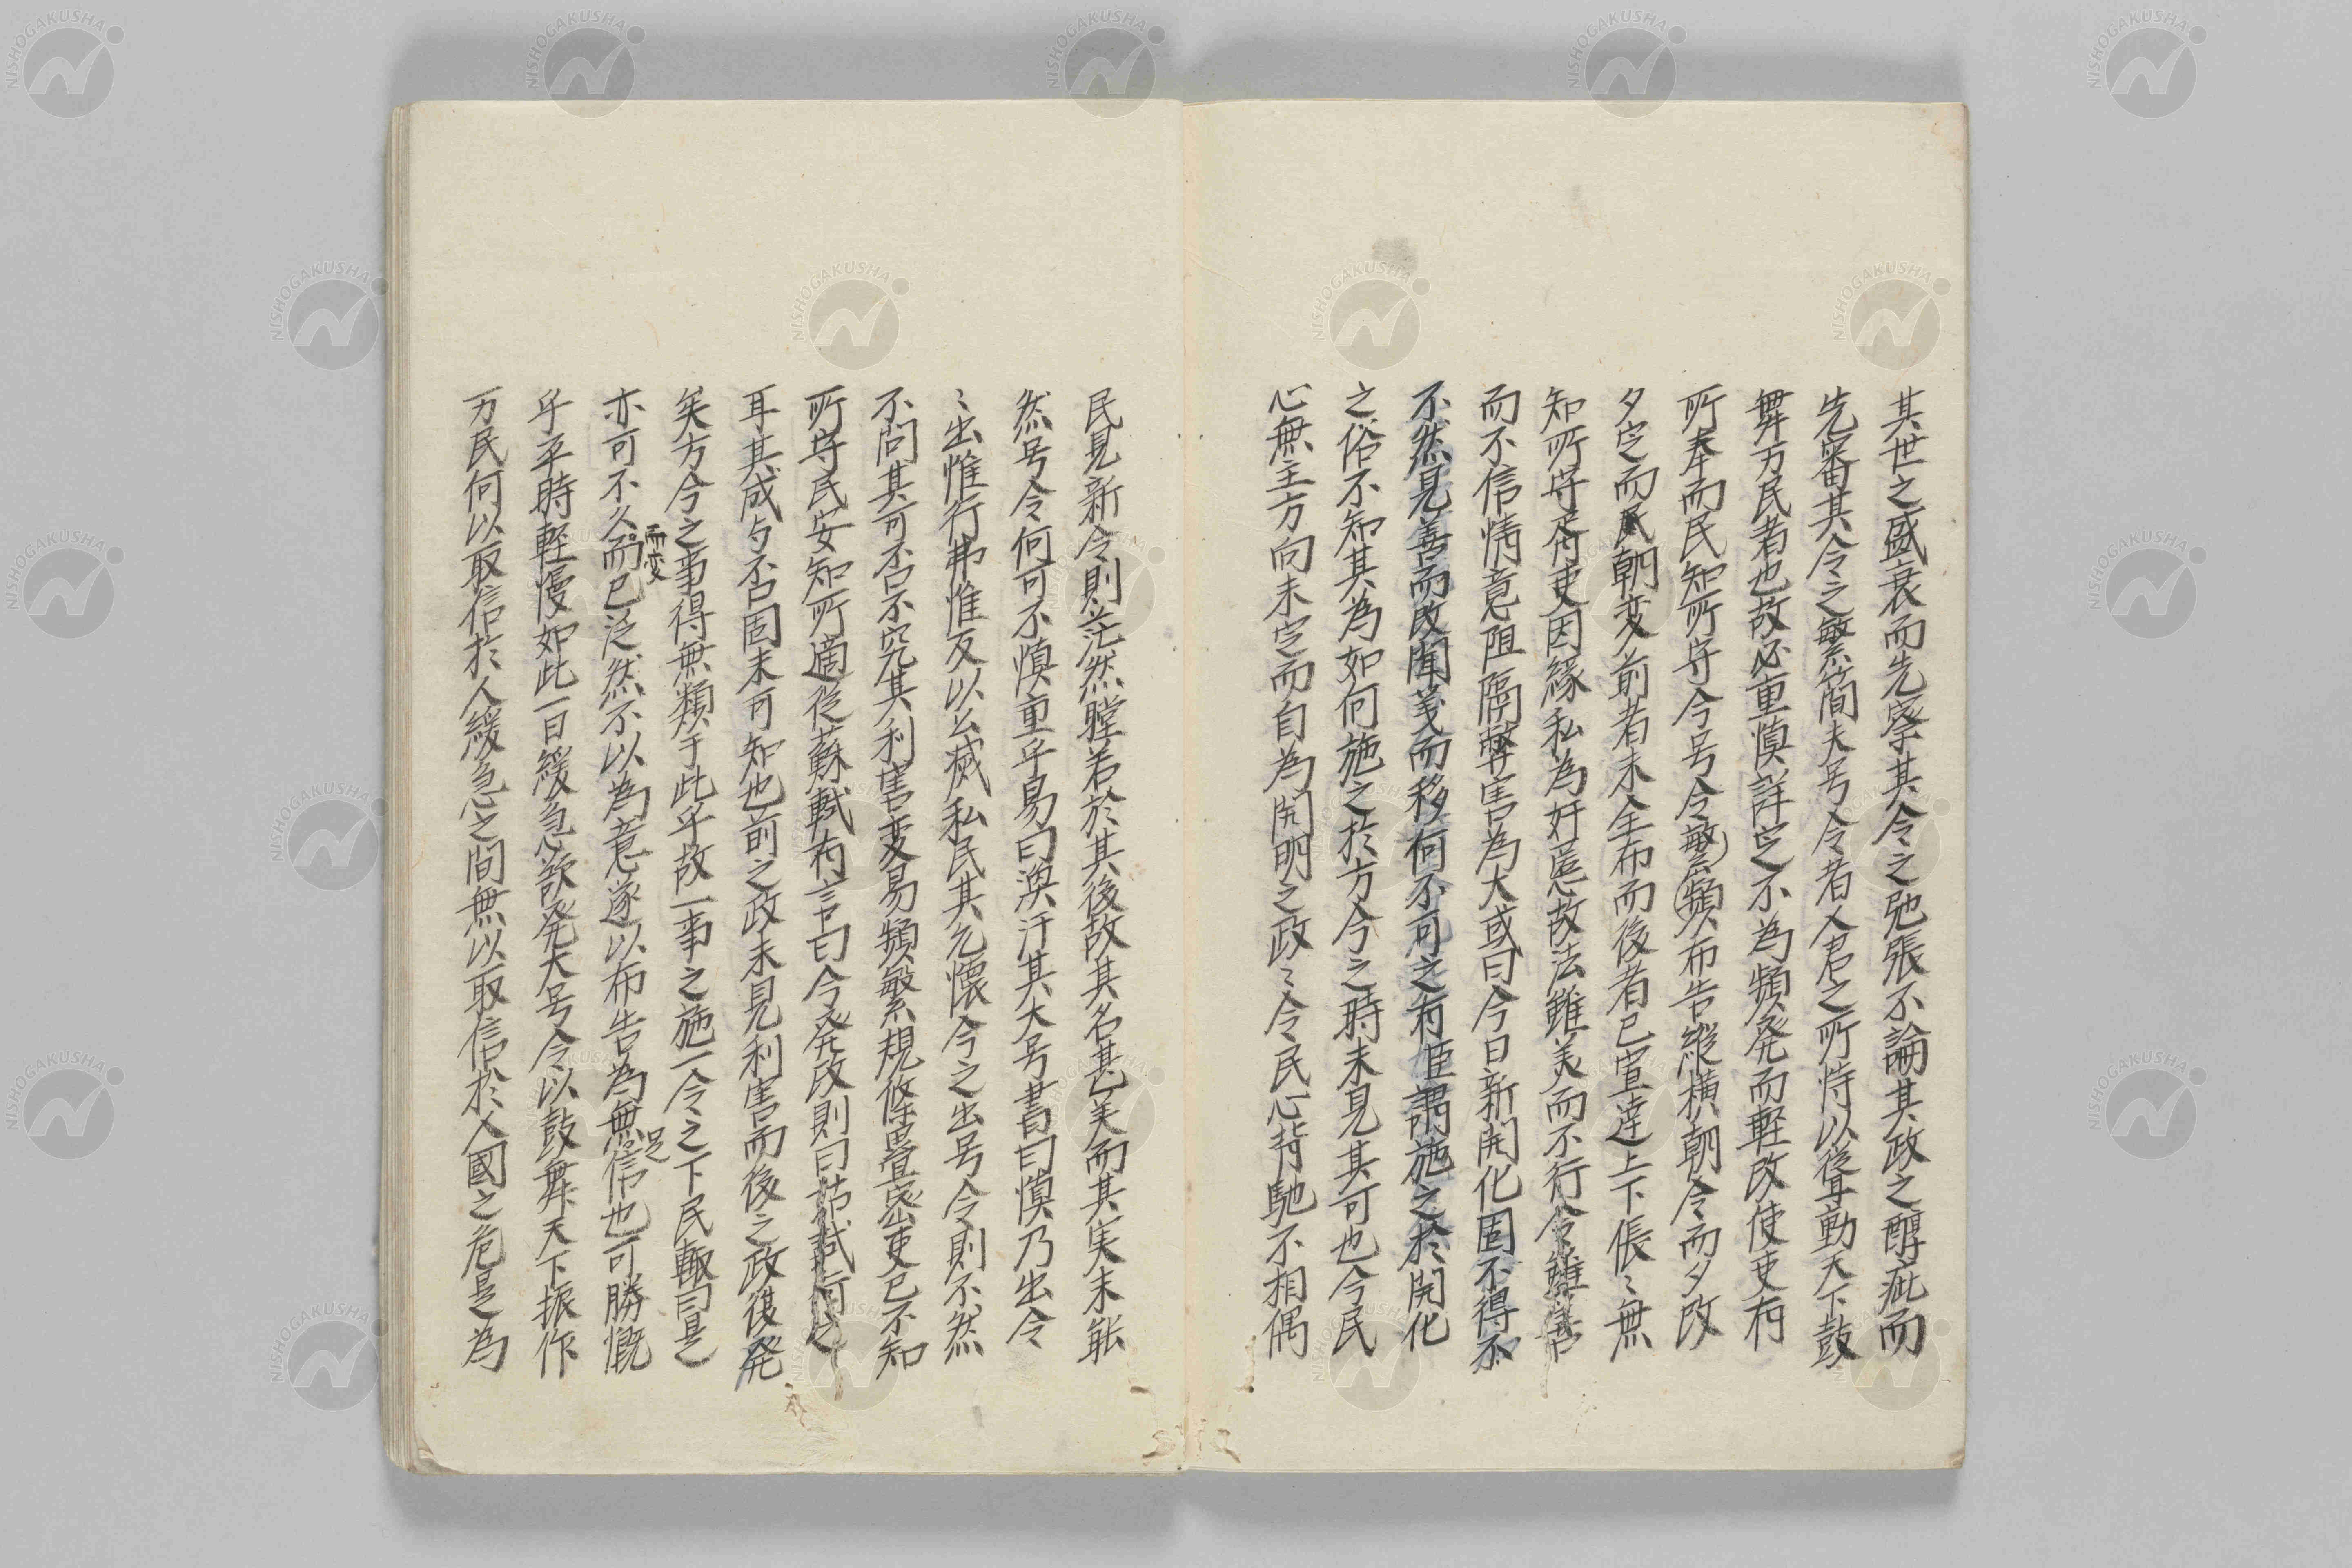 其世之盛衰而先察其令之弛張不論其政之醇疵而
先審其令之繁簡夫号令者人君之所恃以聳動天下鼓
舞万民者也故必重慎詳定不為頻発而軽改使吏有
所奉而民知所守今号令繁頻布告縦横朝令而夕改
夕定而民朝変前者未全布而後者已宣達上下倀〻無
知所守胥吏因縁私為奸慝故法雖美而不行令雖善
而不信情意阻隔弊害為大或曰今日新開化固不得不
不然見善而改聞義而移何不可之有臣謂施之於開化
之俗不知其為如何施之於方今之時未見其可也今民
心無主方向未定而自為開明之政〻令民心背馳不相偶
民見新令則茫然瞠若於其後故其名甚美而其実未能
然号令何可不慎重乎易曰渙汗其大号書曰慎乃出令
〻出惟行弗惟反以公滅私民其允懐今之出号令則不然
不問其可否不究其利害変易頻繁規條畳密吏已不知
所守民安知所適従蘇軾有言曰今発政則曰姑試行之
耳其成与否固未可知也前之政未見利害而後之政復発
矣方今之事得無類于此乎故一事之施一令之下民輙曰是
亦可不久而已泛然不以為意遂以布告為無信也可勝慨
而変
足
乎平時軽慢如此一日緩急欲発大号令以鼓舞天下振作
万民何以取信於人緩急之間無以取信於人國之危是為
NISHOGAKUSHA